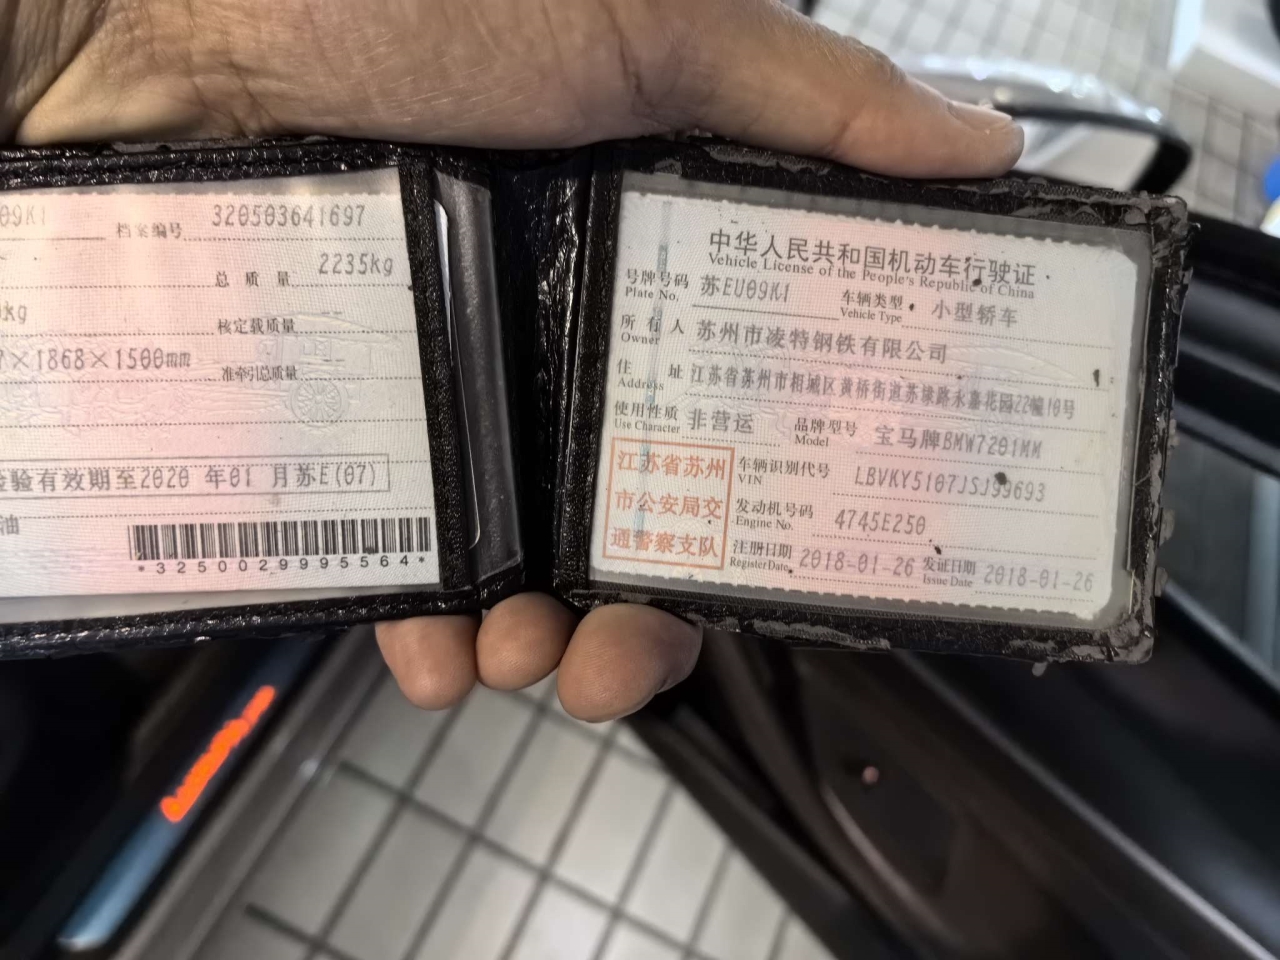 09K1 档案编号 320503641697
总质量 2235kg
kg 核定载质量 --
×1868×1500mm 准牵引总质量 --
检验有效期至2020年01月苏E(07)
油
*3250029995564*
中华人民共和国机动车行驶证
Vehicle License of the People's Republic of China
号牌号码 苏EU09K1 车辆类型 小型轿车
Plate No. Vehicle Type
所有人 苏州市凌特钢铁有限公司
Owner
住址 江苏省苏州市相城区黄桥街道苏埭路永嘉花园22幢10号
Address
使用性质 非营运 品牌型号 宝马牌BMW7201MM
Use Character Model
江苏省苏州
市公安局交
通警察支队
车辆识别代号 LBVKY5107JSJ99693
VIN
发动机号码 4745E250
Engine No.
注册日期 2018-01-26 发证日期 2018-01-26
Register Date Issue Date